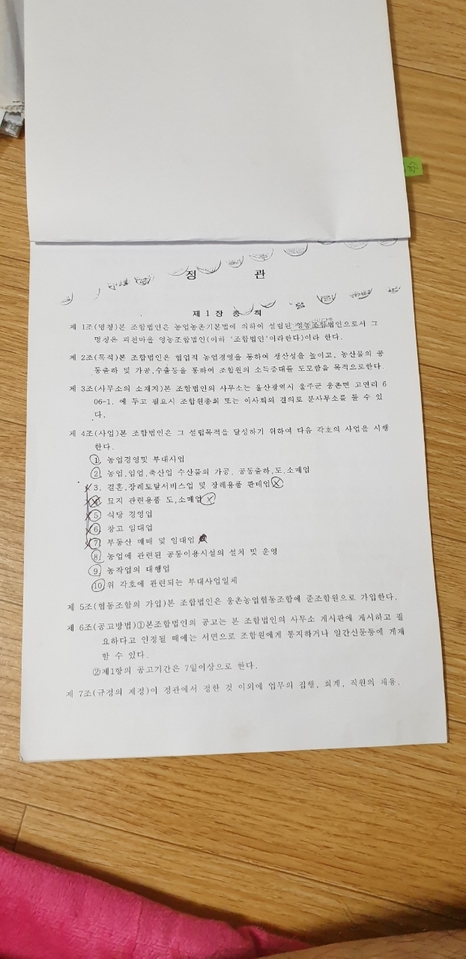 정 관
제 1 장 총 칙
제 1조(명칭)본 조합법인은 농업농촌기본법에 의하여 설립된 영농조합법인으로서 그
명칭은 마을 영농조합법인(이하 '조합법인'이라한다)이라 한다.
제 2조(목적)본 조합법인은 협업적 농업경영을 통하여 생산성을 높이고, 농산물의 공
동출하 및 가공,수출등을 통하여 조합원의 소득증대를 도모함을 목적으로한다.
제 3조(사무소의 소재지)본 조합법인의 사무소는 울산광역시 울주군 웅촌면 고연리 6
06-1, 에 두고 필요시 조합원총회 또는 이사회의 결의로 분사무소를 둘 수 있
다.
제 4조(사업)본 조합법인은 그 설립목적을 달성하기 위하여 다음 각호의 사업을 시행
한다.
1. 농업경영및 부대사업
2. 농업,임업,축산업 수산물의 가공, 공동출하,도,소매업
3. 결혼,장례토탈서비스업 및 장례용품 판매업
묘지 관련용품 도,소매업
5 식당 경영업
6 창고 임대업
7 부동산 매매 및 임대업
8. 농업에 관련된 공동이용시설의 설치 및 운영
9. 농작업의 대행업
10. 위 각호에 관련되는 부대사업일체
제 5조(협동조합의 가입)본 조합법인은 웅촌농업협동조합에 준조합원으로 가입한다.
제 6조(공고방법)①본조합법인의 공고는 본 조합법인의 사무소 게시판에 게시하고 필
요하다고 인정될 때에는 서면으로 조합원에게 통지하거나 일간신문등에 게재
할 수 있다.
②제1항의 공고기간은 7일이상으로 한다.
제 7조(규정의 제정)이 정관에서 정한 것 이외에 업무의 집행, 회계, 직원의 채용,